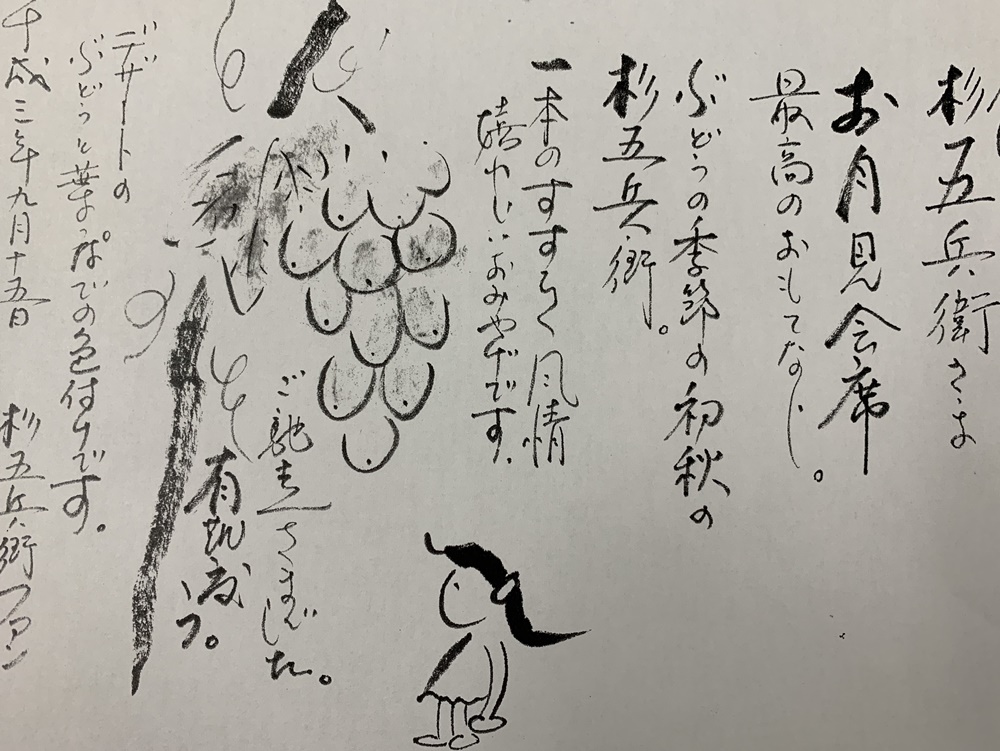 杉五兵衛さま
お月見会席
最高のおもてなし。
ぶどうの季節の初秋の
杉五兵衛。
一本のすすきの風情
嬉しいおみやげです。
ご馳走さまでした。
有難う。
デザートの
ぶどうと葉っぱでの色付けです。
平成三年九月十五日 杉五兵衛ファン